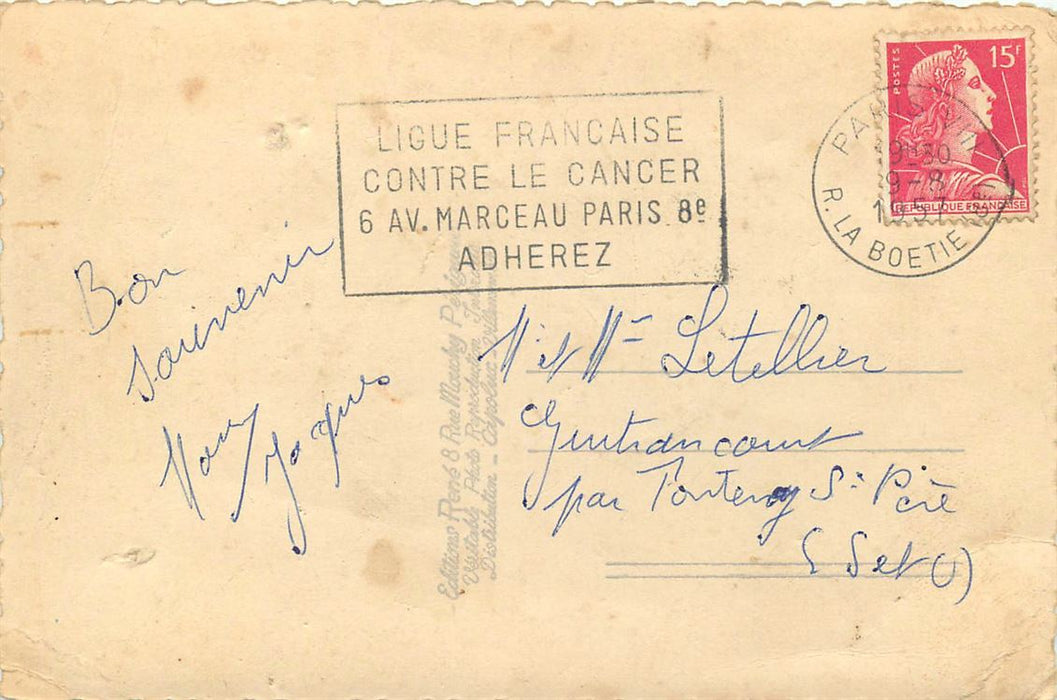 POSTES
15F
REPUBLIQUE FRANÇAISE
PARIS
9-30
9-8
1957
R. LA BOETIE (8e)
LIGUE FRANCAISE
CONTRE LE CANCER
6 AV. MARCEAU PARIS 8e
ADHEREZ
Bon
souvenir
Jacques
M et Mme Letellier
Guitrancourt
par Fontenay St Père
S et O
Editions René 8 Rue Mouchy
Véritable Photo Reproduction
Distribution